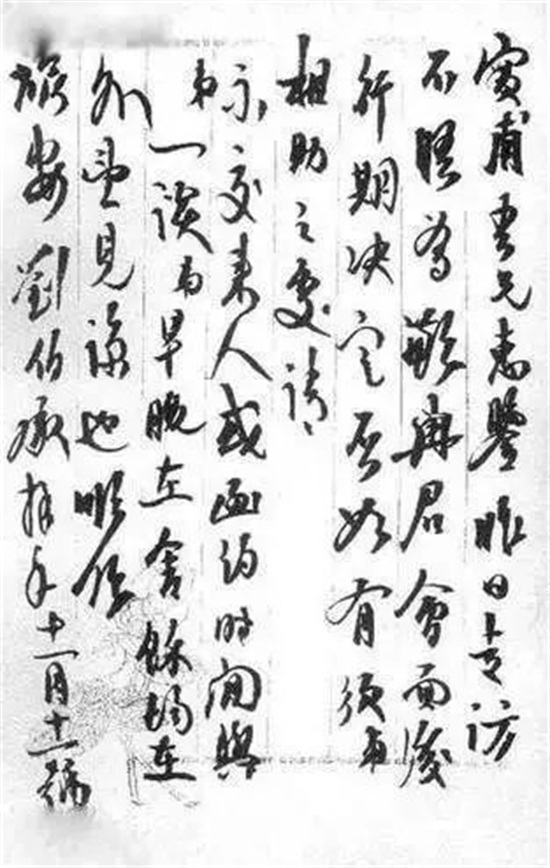 寅甫吾兄惠鑒昨日走訪
不晤為歉君會面後
行期決定否如有須弟
相助之處請
示交來人或函約時間與
弟一談弟早晚在舍餘均在
外見諒也順頌
旅安劉伯承拜手十一月十一號